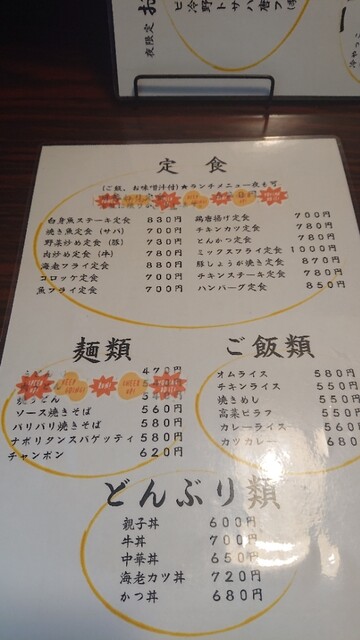 夜限定
定食
(ご飯、お味噌汁付)★ランチメニュー夜も可
白身魚ステーキ定食 830円
焼き魚定食 (サバ) 700円
野菜炒め定食 (豚) 730円
肉炒め定食 (牛) 780円
海老フライ定食 880円
コロッケ定食 700円
魚フライ定食 700円
鶏唐揚げ定食 700円
チキンカツ定食 780円
とんかつ定食 780円
ミックスフライ定食 1000円
豚しょうが焼き定食 870円
チキンステーキ定食 770円
ハンバーグ定食 850円
麺類
470円
ソース焼きそば 560円
パリパリ焼きそば 580円
ナポリタンスパゲッティ 580円
チャンポン 620円
ご飯類
オムライス 580円
チキンライス 550円
焼きめし 550円
高菜ピラフ 550
カレーライス 560
カツカレー 680
どんぶり類
親子丼 600円
牛丼 700円
中華丼 650円
海老カツ丼 720円
かつ丼 680円